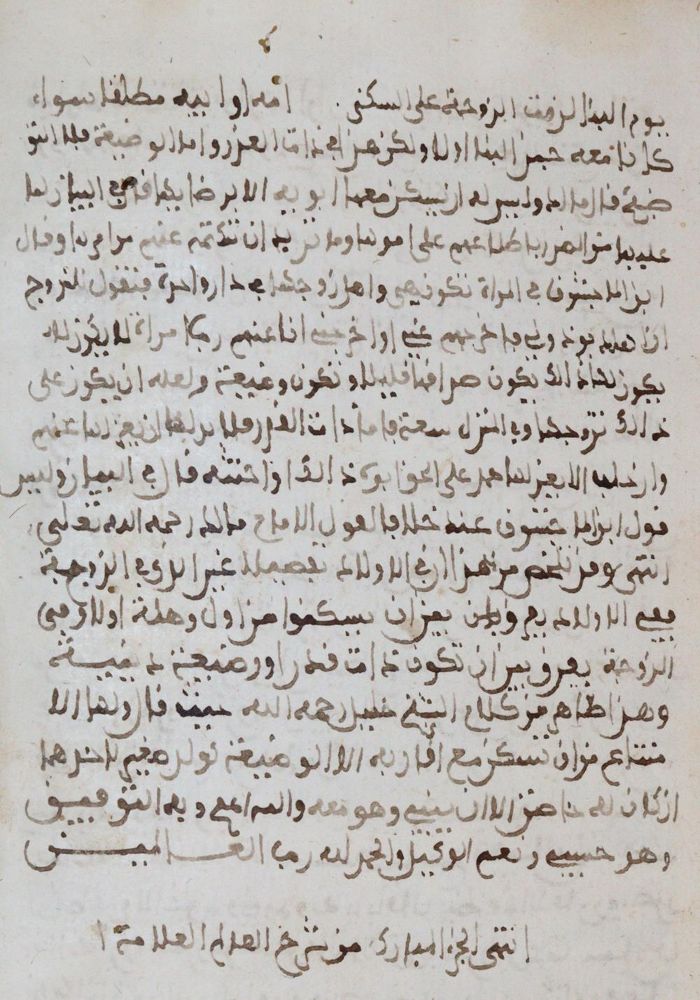 يوم البنا لزمت الزوجة على السكنى امه او ابيه مطلقا سواء
كانا معه حين البنا اولا ولكن هذا في ذات القدر واما الوضيعة فلا انتهى
قال مالك وليس له ان يسكن معها ابويه الا برضاها قال في البيان لما
عليها من الضرر باطلاعهم على امورها وما تريد ان تكتمه عنهم
ابن الماجشون في المراة تكون هي واهل زوجها في دار واحدة فتقول للزوج
اخرجهم عني او اخرجني عنهم رب امراة لا يكون ذلك
يكون لها ذلك يكون صداقها قليلا وتكون وضيعة ولعله ان يكون على
ذلك تزوجها وفي المنزل سعة فاما ذات القدر فلا بد لها ان يعزلها عنهم
وان حلف الا يعزلها حمل على الحق ابره ذلك او احنثه قال في البيان وليس
قول ابن الماجشون عندي خلافا لقول الامام مالك رحمه الله تعالى
انتهى وقد تلخص من هذا ان في الاولاد تفصيلا غير الذي في الزوجة
ففي الاولاد يفرق بين ان يسكنوا من اول وهلة اولا وفي
الزوجة يفرق بين ان تكون ذات قدر او وضيعة دنية
وهذا ظاهر من كلام الشيخ خليل رحمه الله حيث قال ولها الا
متناع من ان تسكن مع اقاربه الا الوضيعة كولد صغير لاحدهما
ان كان له حاضن الا ان يبني وهو معه والله اعلم وبه التوفيق
وهو حسبي ونعم الوكيل والحمد لله رب العالمين
انتهى الجزء المبارك من شرح العالم العلامة ا